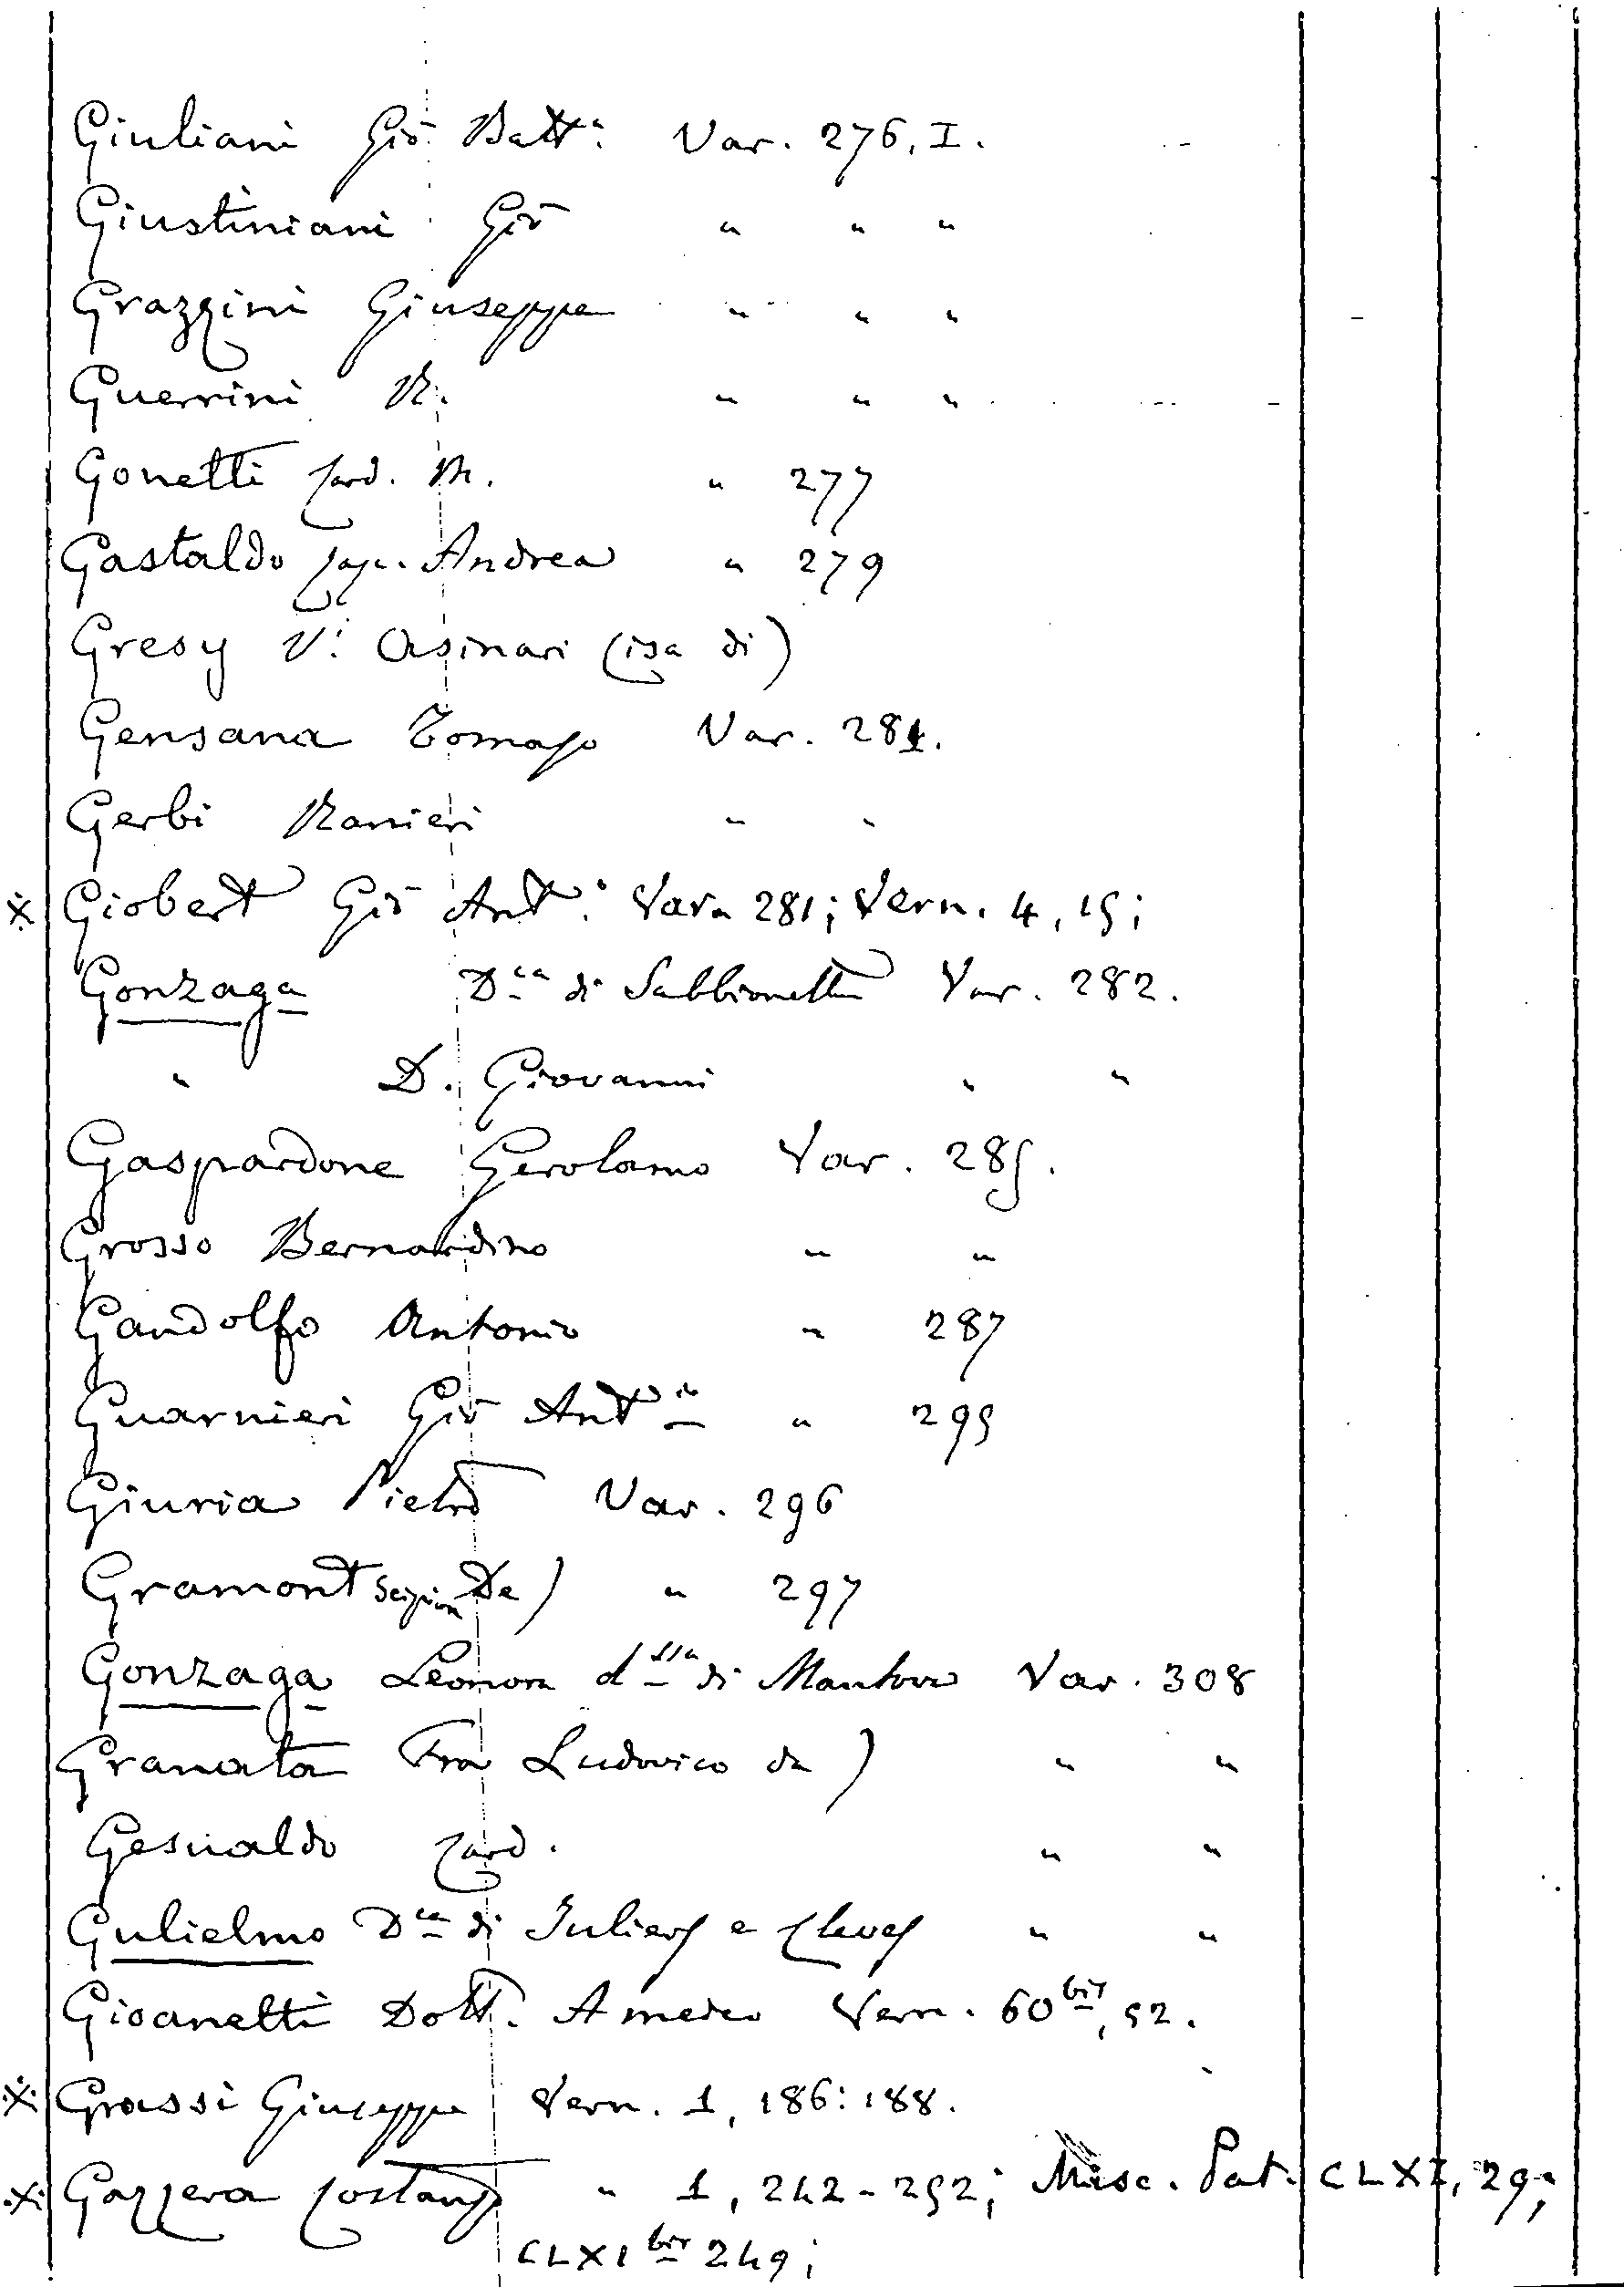 Giuliani Gio Batt.a Var. 276, I.
Giustiniani Gio " " "
Grazzini Giuseppe " " "
Guerrini R. " " "
Gonetti Card. M. " 277
Gastaldo Cap. Andrea " 279
Gresy V.i Asinari (Csa di)
Gensana Tomaso Var. 281.
Gerbi Ranieri " "
※ Giobert Gio Ant.o Var. 281; Vern. 4, 15;
Gonzaga D.ca di Sabbionetta Var. 282.
" D. Giovanni " "
Gaspardone Gerolamo Var. 285.
Grosso Bernardino " "
Gandolfo Antonio " 287
Guarnieri Gio Ant.io " 295
Giuria Pietro Var. 296
Gramont Scipion De) " 297
Gonzaga Leonora d.ssa di Mantova Var. 308
Granata Fra Ludovico da) " "
Gesualdo Card. " "
Gulielmo D.ca di Juliers e Cleves " "
Gioanetti Dott. Amedeo Vern. 60 bis, 52.
※ Grassi Giuseppe Vern. 1, 186:188.
※ Gazzera Costanzo " 1, 242-252; Misc. Pat. CLXI, 29;
CLXI bis 249;